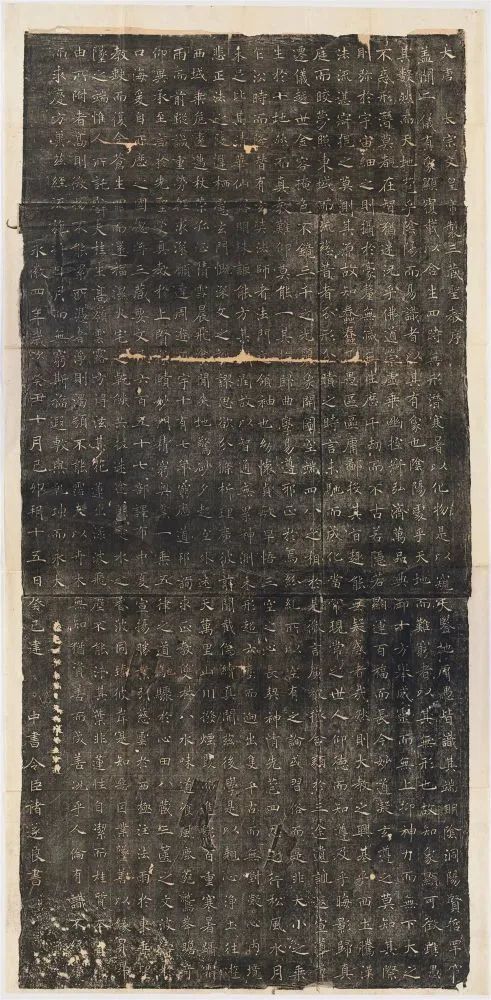 大唐太宗文皇帝製三藏聖教序
蓋聞二儀有像顯覆載以含生四時無形潛寒暑以化物是以窺天鑒地庸愚皆識其端明陰洞陽賢哲罕窮
其數然而天地苞乎陰陽而易識者以其有像也陰陽處乎天地而難窮者以其無形也故知像顯可徵雖愚
不惑形潛莫覩在智猶迷況乎佛道崇虛乘幽控寂弘濟萬品典御十方舉威靈而無上抑神力而無下大之
則彌於宇宙細之則攝於豪釐無滅無生歷千劫而不古若隱若顯運百福而長今妙道凝玄遵之莫知其際
法流湛寂挹之莫測其源故知蠢蠢凡愚區區庸鄙投其旨趣能無疑惑者哉然則大教之興基乎西土騰漢
庭而皎夢照東域而流慈昔者分形分跡之時言未馳而成化當常現常之世人仰德而知遵及乎晦影歸真
遷儀越世金容掩色不鏡三千之光麗象開圖空端四八之相於是微言廣被拯含類於三途遺訓遐宣導群
生於十地然而真教難仰莫能一其旨歸曲學易遵邪正於焉紛糺所以空有之論或習俗而是非大小之乘
乍沿時而隆替有玄奘法師者法門之領袖也幼懷貞敏早悟三空之心長契神情先苞四忍之行松風水月
未足比其清華仙露明珠詎能方其朗潤故以智通無累神測未形超六塵而迥出隻千古而無對凝心內境
悲正法之陵遲栖慮玄門慨深文之訛謬思欲分條析理廣彼前聞截偽續真開茲後學是以翹心淨土往遊
西域乘危遠邁杖策孤征積雪晨飛途閒失地驚砂夕起空外迷天萬里山川撥煙霞而進影百重寒暑躡霜
雨而前蹤誠重勞輕求深願達周遊西宇十有七年窮歷道邦詢求正教雙林八水味道餐風鹿菀鷲峯瞻奇
仰異承至言於先聖受真教於上賢探賾妙門精窮奧業一乘五律之道馳驟於心田八藏三篋之文波濤於
口海爰自所歷之國總將三藏要文凡六百五十七部譯布中夏宣揚勝業引慈雲於西極注法雨於東垂聖
教缺而復全蒼生罪而還福濕火宅之乾燄共拔迷途朗愛水之昏波同臻彼岸是知惡因業墜善以緣昇昇
墜之端惟人所託譬夫桂生高嶺雲露方得泫其花蓮出淥波飛塵不能汙其葉非蓮性自潔而桂質本
由所附者高則微物不能累所憑者淨則濁類不能霑夫以卉木無知猶資善而成善況乎人倫有識不緣
而求慶方冀茲經流施將日月而無窮斯福遐敷與乾坤而永大
永徽四年歲次癸丑十月己卯朔十五日癸巳建 中書令臣褚遂良書